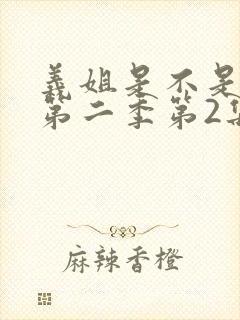 義姐是不是
第二季第2集
麻辣香橙